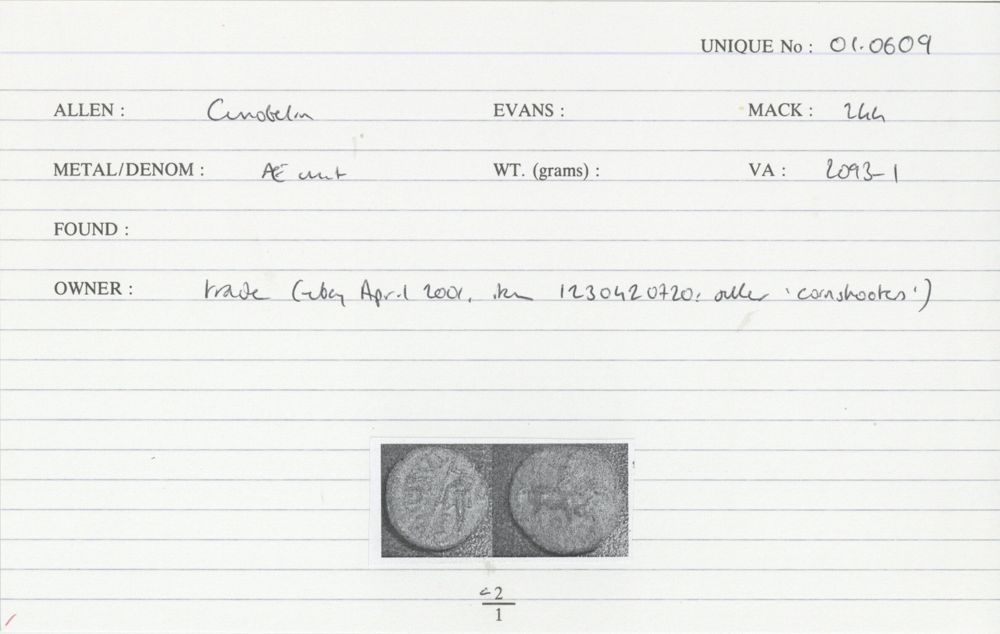 UNIQUE No : 01.0609
ALLEN : Cunobelin EVANS : MACK : 244
METAL/DENOM : Æ unit WT. (grams) : VA : 2093-1
FOUND :
OWNER : trade (ebay April 2001, item 1230420720: seller 'coinshooters')
c2
1